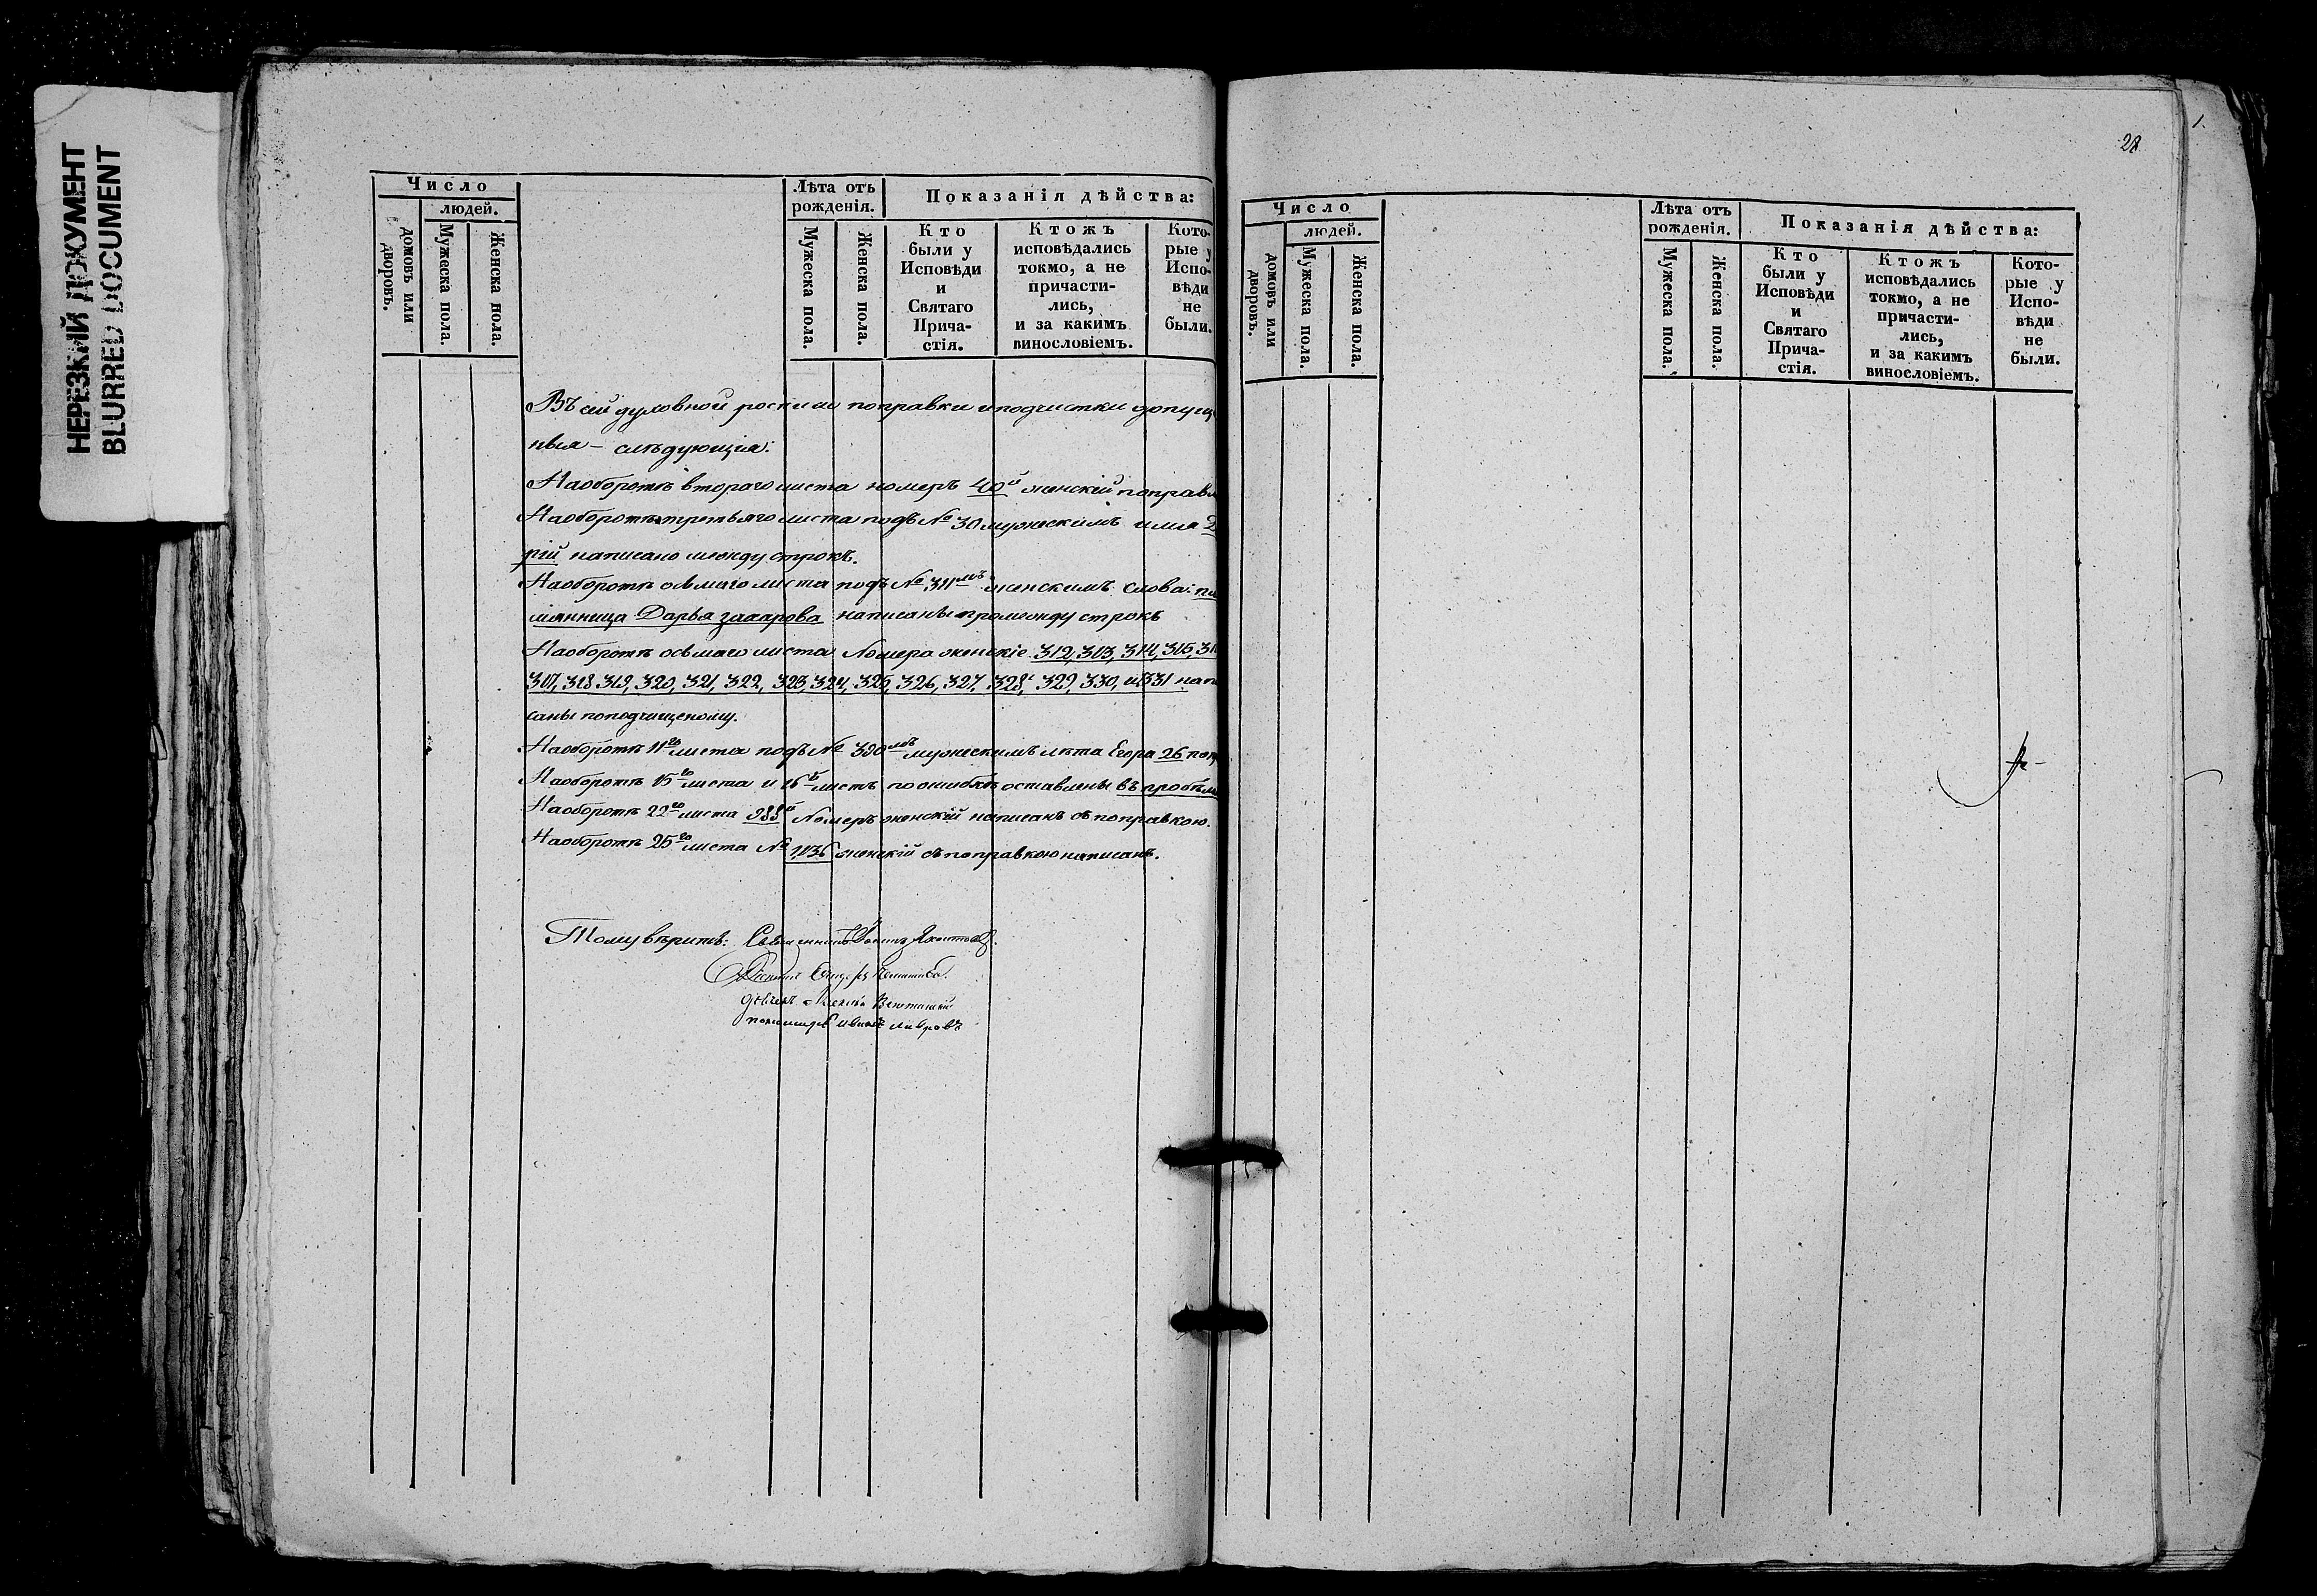 НЕРЕЗКИЙ ДОКУМЕНТ
BLURRED DOCUMENT
Число
людей.
домовъ или дворовъ.
Мужеска пола.
Женска пола.
Лѣта отъ
рожденія.
Мужеска пола.
Женска пола.
Показанія дѣйства:
Кто
были у
Исповѣди
и
Святаго
Прича-
стія.
Ктожъ
исповѣдались
токмо, а не
причасти-
лись,
и за какимъ
винословіемъ.
Кото-
рые у
Испо-
вѣди
не
были.
Въ сей духовной росписи поправки и подчистки допущ
ныя – слѣдующія:
На оборотѣ втораго листа номеръ 40й женскій поправл
На оборотѣ третьяго листа подъ № 30 мужескимъ имя
рій написано между строкъ.
На оборотѣ осьмаго листа подъ № 311мъ женскимъ слова: пле
мянница Дарья Захарова написаны промежду строкъ
На оборотѣ осьмаго листа Номера женскіе 312, 313, 314, 315, 31
317, 318 319, 320, 321, 322, 323, 324, 325, 326, 327, 328, 329, 330, и 331 напи
саны по подчищеному.
На оборотѣ 11го листа подъ № 390мъ мужескимъ лѣта Егора 26 поп
На оборотѣ 15го листа и 16й листъ по ошибкѣ оставлены въ пробѣл
На оборотѣ 22го листа 988й Номеръ женскій написанъ съ поправкою.
На оборотѣ 25го листа № 1,036 женскій съ поправкою написанъ.
Тому вѣритъ: Священникъ
Діаконъ
дьячекъ
пономарь Иванъ Лавровъ
28
Число
людей.
домовъ или дворовъ.
Мужеска пола.
Женска пола.
Лѣта отъ
рожденія.
Мужеска пола.
Женска пола.
Показанія дѣйства:
Кто
были у
Исповѣди
и
Святаго
Прича-
стія.
Ктожъ
исповѣдались
токмо, а не
причасти-
лись,
и за какимъ
винословіемъ.
Кото-
рые у
Испо-
вѣди
не
были.